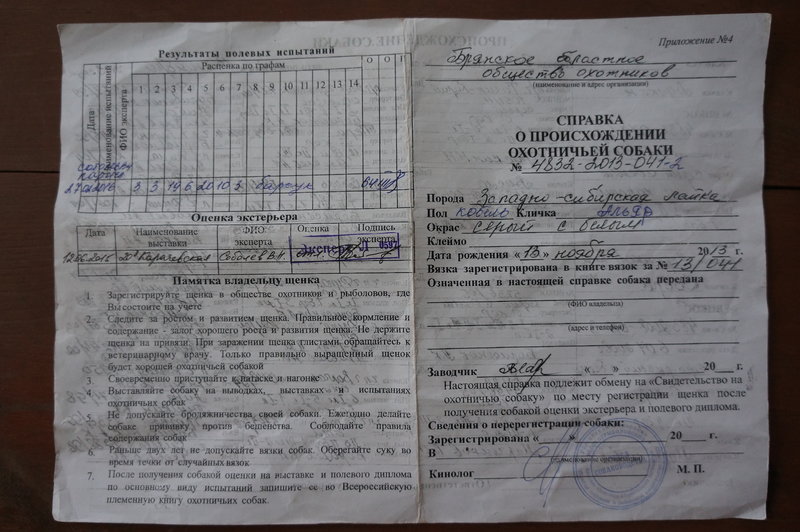 Результаты полевых испытаний
Дата
Наименование испытаний
ФИО эксперта
Расценка по графам
1 2 3 4 5 6 7 8 9 10 11 12 13 14
О О П
барсук
Оценка экстерьера
Дата
Наименование выставки
ФИО эксперта
Оценка
Подпись эксперта
12.06.2015 20я Карачевская Соболев В.Н. отл.
Эксперт
Памятка владельцу щенка
1. Зарегистрируйте щенка в обществе охотников и рыболовов, где
Вы состоите на учете
2. Следите за ростом и развитием щенка. Правильное кормление и
содержание - залог хорошего роста и развития щенка. Не держите
щенка на привязи. При заражении щенка глистами обращайтесь к
ветеринарному врачу. Только правильно выращенный щенок
будет хорошей охотничьей собакой
3. Своевременно приступайте к натаске и нагонке
4. Выставляйте собаку на выводках, выставках и испытаниях
охотничьих собак
5. Не допускайте бродяжничества своей собаки. Ежегодно делайте
собаке прививку против бешенства. Соблюдайте правила
содержания собак
6. Раньше двух лет не допускайте вязки собак. Оберегайте суку во
время течки от случайных вязок
7. После получения собакой оценки на выставке и полевого диплома
по основному виду испытаний запишите ее во Всероссийскую
племенную книгу охотничьих собак
Приложение №4
Брянское областное
общество охотников
(наименование и адрес организации)
СПРАВКА
О ПРОИСХОЖДЕНИИ
ОХОТНИЧЬЕЙ СОБАКИ
№ 4832-2013-041-2
Порода Западно-сибирская лайка
Пол кобель Кличка Альдар
Окрас серый с белым
Клеймо
Дата рождения «13» ноября 2013 г.
Вязка зарегистрирована в книге вязок за № 13/041
Означенная в настоящей справке собака передана
(ФИО владельца)
(адрес и телефон)
Заводчик « » 20 г.
Настоящая справка подлежит обмену на «Свидетельство на
охотничью собаку» по месту регистрации щенка после
получения собакой оценки экстерьера и полевого диплома.
Сведения о перерегистрации собаки:
Зарегистрирована « » 20 г.
В
(наименование организации)
Кинолог М. П.